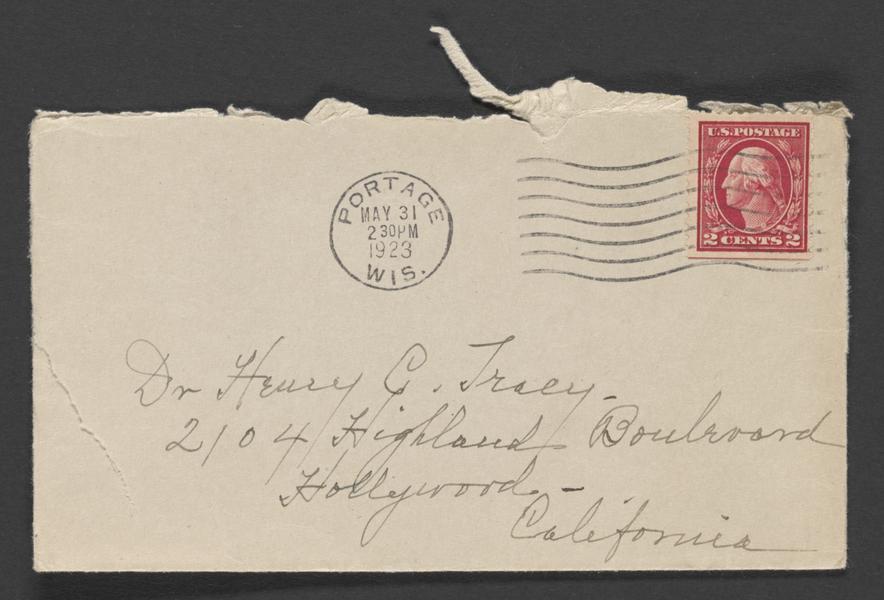 U.S.POSTAGE
2 CENTS 2
PORTAGE
MAY 31
2 30PM
1923
WIS.
Dr Henry C. Tracy
2104 Highland Boulevard
Hollywood -
California